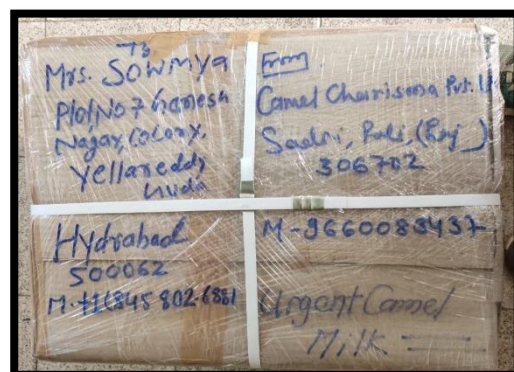 To
Mrs. Sowmya
Plot No 7 Ganesh
Nagar, Colony,
Yellareddy
Guda
Hydrabad
500062
M-+1(845 802 6881
From
Camel Charisma Pvt. Ltd
Sadri, Pali, (Raj)
306702
M-9660083437
Urgent Camel
Milk